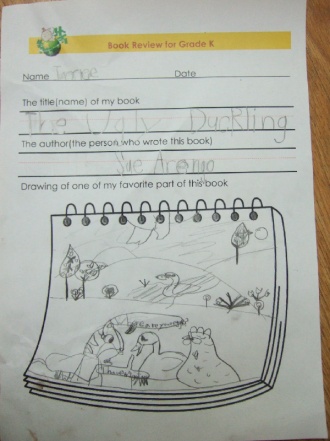 Book Review for Grade K
Name Date
The title(name) of my book
The Ugly Duckling
The author(the person who wrote this book)
Sue Arengo
Drawing of one of my favorite part of this book